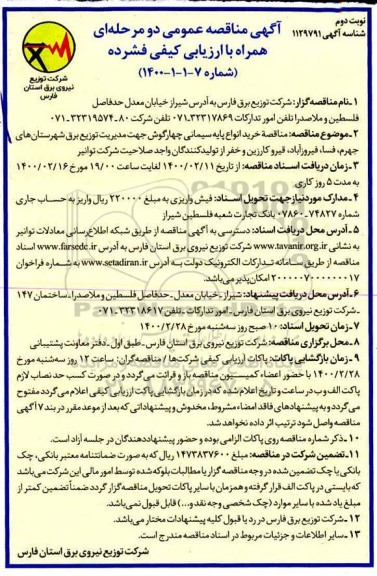 نوبت دوم
شناسه آگهی ۱۱۲۹۷۹۱
آگهی مناقصه عمومی دو مرحله‌ای
همراه با ارزیابی کیفی فشرده
(شماره ۷-۱-۱-۱۴۰۰)
شرکت توزیع
نیروی برق استان
فارس
۱ـ نام مناقصه‌گزار: شرکت توزیع برق فارس به آدرس شیراز خیابان معدل حدفاصل
فلسطین و ملاصدرا تلفن امور تدارکات ۳۲۳۱۷۸۶۹-۰۷۱ تلفن شرکت ۸۰-۳۲۳۱۹۵۷۴-۰۷۱
۲ـ موضوع مناقصه: مناقصه خرید انواع پایه سیمانی چهارگوش جهت مدیریت توزیع برق شهرستان‌های
جهرم، فسا، فیروزآباد، قیرو کارزین و خفر از تولیدکنندگان واجد صلاحیت شرکت توانیر
۳ـ زمان دریافت اسناد مناقصه: از تاریخ ۱۴۰۰/۰۲/۱۱ لغایت ساعت ۱۹/۰۰ مورخ ۱۴۰۰/۰۲/۱۶
به مدت ۵ روز کاری
۴ـ مدارک موردنیاز جهت تحویل اسناد: فیش واریزی به مبلغ ۲۲۰۰۰۰ ریال واریز به حساب جاری
شماره ۷۴۸۲۷-۰۷۸۶۰ بانک تجارت شعبه فلسطین شیراز
۵ـ آدرس محل دریافت اسناد: دسترسی به آگهی مناقصه از طریق شبکه اطلاع‌رسانی معادلات توانیر
به نشانی www.tavanir.org.ir شرکت توزیع نیروی برق استان فارس به آدرس www.farsedc.ir اسناد
مناقصه از طریق سامانه تدارکات الکترونیک دولت به آدرس www.setadiran.ir به شماره فراخوان
۲۰۰۰۰۰۷۰۰۰۰۰۰۰۱۷ امکان‌پذیر می‌باشد.
۶ـ آدرس محل دریافت پیشنهاد: شیراز ـ خیابان معدل ـ حدفاصل فلسطین و ملاصدرا ـ ساختمان ۱۴۷
ـ شرکت توزیع نیروی برق استان فارس ـ امور تدارکات ـ تلفن ۳۲۳۱۸۶۱۷-۰۷۱
۷ـ زمان تحویل اسناد: ۱۰ صبح روز سه‌شنبه مورخ ۱۴۰۰/۲/۲۸
۸ـ محل برگزاری مناقصه: شرکت توزیع نیروی برق استان فارس ـ طبق اول ـ دفتر معاونت پشتیبانی
۹ـ زمان بازگشایی پاکات: پاکات ارزیابی کیفی شرکت‌ها / مناقصه‌گران: ساعت ۱۲ روز سه‌شنبه مورخ
۱۴۰۰/۲/۲۸ با حضور اعضاء کمیسیون مناقصه باز و قرائت می‌گردد و در صورت کسب حد نصاب لازم
پاکت الف و ب در ساعت و تاریخ اعلام شده که در زمان بازگشایی پاکت ارزیابی کیفی اعلام می‌گردد مفتوح
می‌گردد و به پیشنهادهای فاقد امضاء مشروط، مخدوش و پیشنهاداتی که بعد از موعد مقرر در بند ۷ آگهی
مناقصه واصل شود ترتیب اثر داده نخواهد شد.
۱۰ـ ذکر شماره مناقصه روی پاکات الزامی بوده و حضور پیشنهاددهندگان در جلسه آزاد است.
۱۱ـ تضمین شرکت در مناقصه: مبلغ ۱۴۷۳۸۳۷۶۰۰ ریال که به صورت ضمانتنامه معتبر بانکی، چک
بانکی یا چک تضمین شده در وجه مناقصه گزار یا مطالبات بلوکه شده توسط امور مالی این شرکت می‌باشد
که بایستی در پاکت الف قرار گرفته و همزمان با سایر پاکات تحویل مناقصه گزار گردد ضمناً تضمین کمتر از
مبلغ یاد شده یا سایر موارد (چک شخصی وجه نقد و...) قابل قبول نمی‌باشد.
۱۲ـ شرکت توزیع برق فارس در رد یا قبول کلیه پیشنهادات مختار می‌باشد.
۱۳ـ سایر اطلاعات و جزئیات مربوط در اسناد مناقصه مندرج است.
شرکت توزیع نیروی برق استان فارس